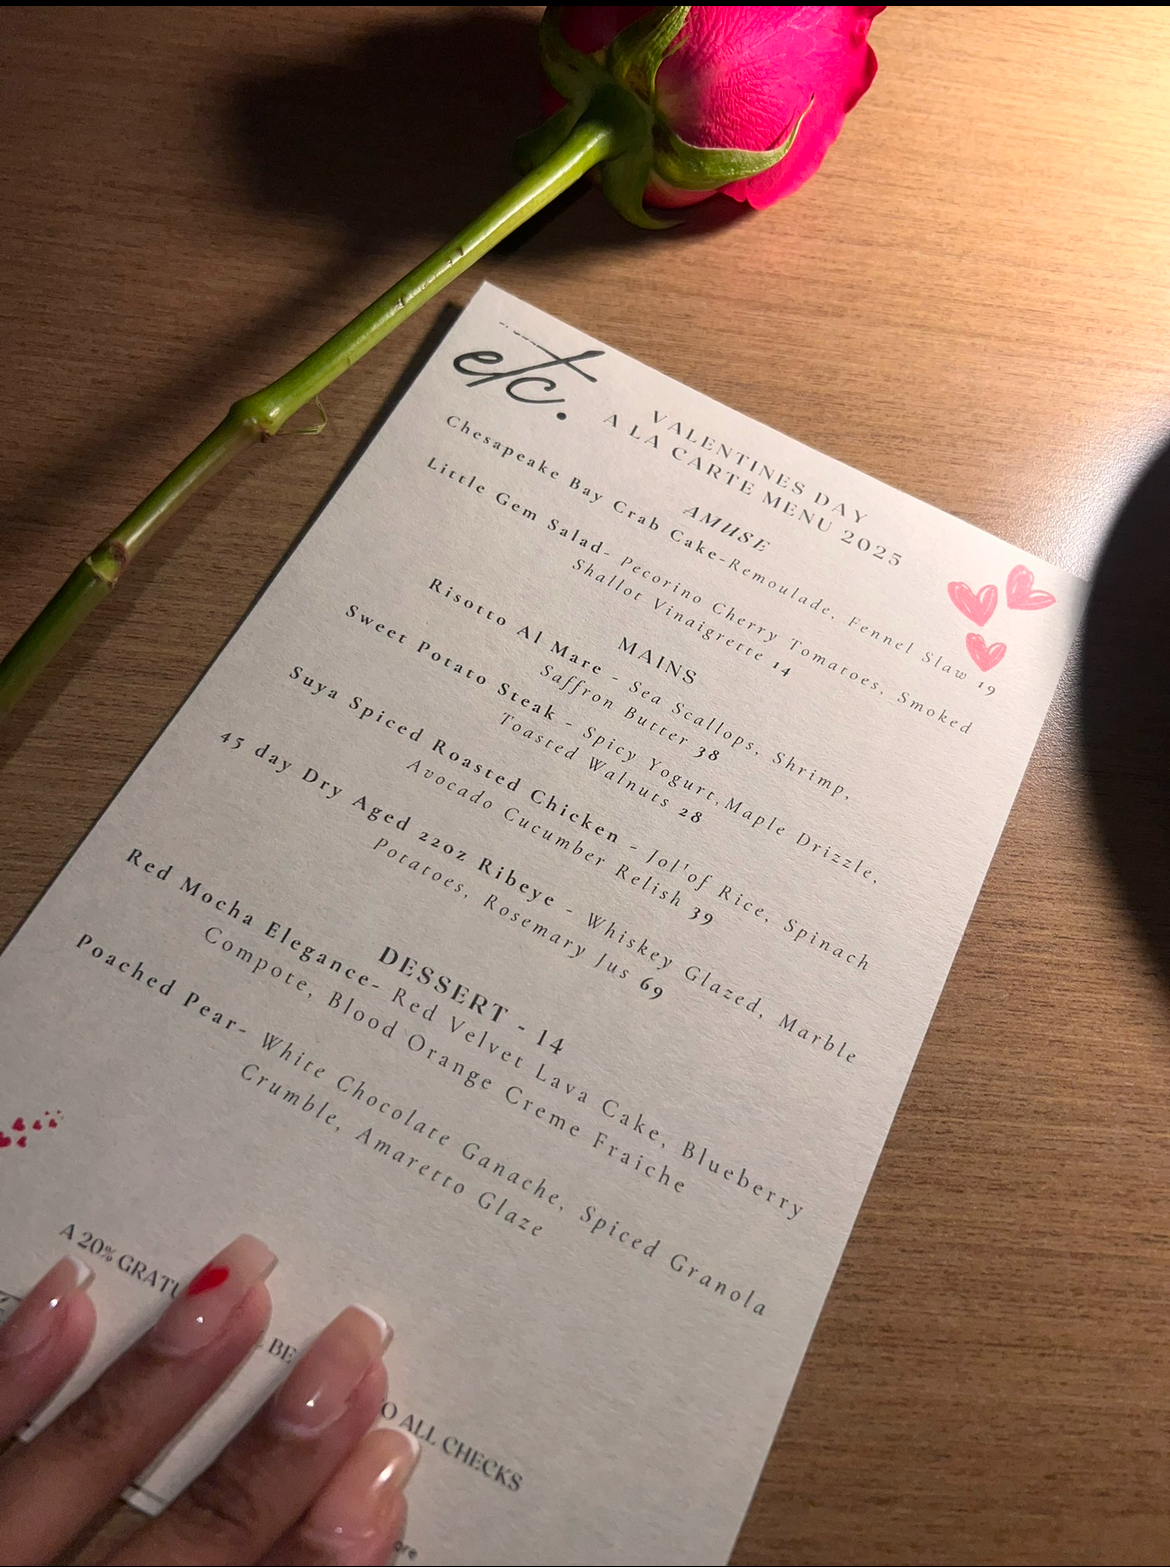 etc.
VALENTINES DAY
A LA CARTE MENU 2025
AMUSE
Chesapeake Bay Crab Cake-Remoulade, Fennel Slaw 19
Little Gem Salad- Pecorino Cherry Tomatoes, Smoked
Shallot Vinaigrette 14
MAINS
Risotto Al Mare - Sea Scallops, Shrimp,
Saffron Butter 38
Sweet Potato Steak - Spicy Yogurt,Maple Drizzle,
Toasted Walnuts 28
Suya Spiced Roasted Chicken - Jol'of Rice, Spinach
Avocado Cucumber Relish 39
45 day Dry Aged 22oz Ribeye - Whiskey Glazed, Marble
Potatoes, Rosemary Jus 69
DESSERT - 14
Red Mocha Elegance- Red Velvet Lava Cake, Blueberry
Compote, Blood Orange Creme Fraiche
Poached Pear- White Chocolate Ganache, Spiced Granola
Crumble, Amaretto Glaze
A 20% BE ALL CHECKS